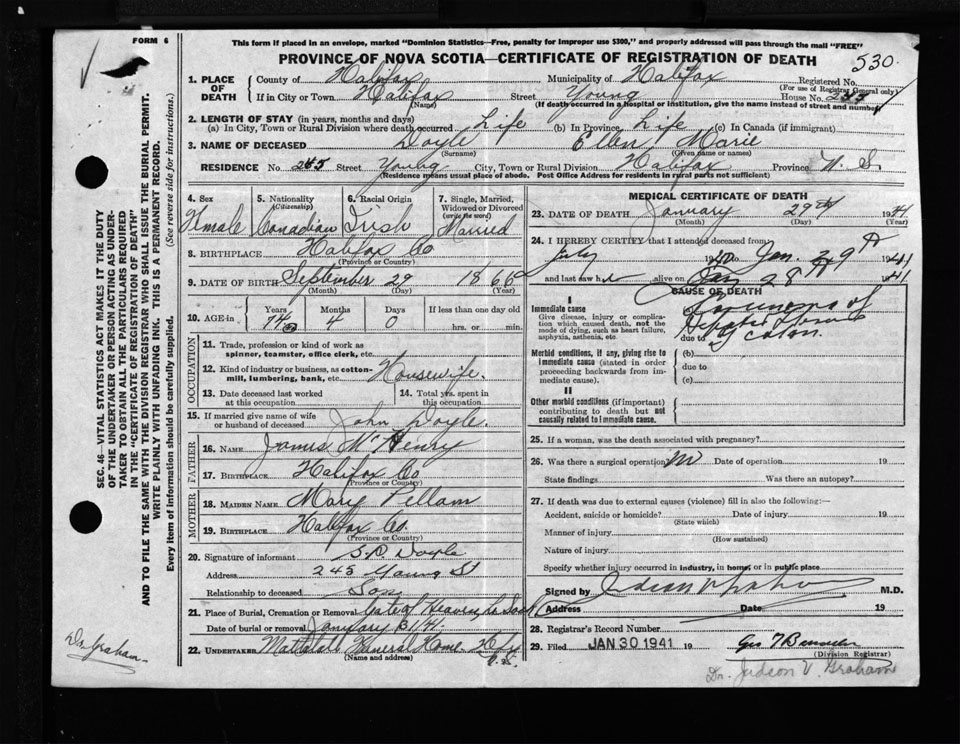 FORM 6
This form if placed in an envelope, marked "Dominion Statistics—Free, penalty for improper use $300," and properly addressed will pass through the mail "FREE"
PROVINCE OF NOVA SCOTIA—CERTIFICATE OF REGISTRATION OF DEATH
530.
SEC. 46—VITAL STATISTICS ACT MAKES IT THE DUTY
OF THE UNDERTAKER OR PERSON ACTING AS UNDER-
TAKER TO OBTAIN ALL THE PARTICULARS REQUIRED
IN THE "CERTIFICATE OF REGISTRATION OF DEATH"
AND TO FILE THE SAME WITH THE DIVISION REGISTRAR WHO SHALL ISSUE THE BURIAL PERMIT.
WRITE PLAINLY WITH UNFADING INK. THIS IS A PERMANENT RECORD.
Every item of information should be carefully supplied. (See reverse side for instructions.)
1. PLACE OF DEATH County of Halifax Municipality of Halifax Registered No.
(For use of Registrar General only)
If in City or Town Halifax Street Young House No. 245
(Name) (If death occurred in a hospital or institution, give the name instead of street and number)
2. LENGTH OF STAY (in years, months and days)
(a) In City, Town or Rural Division where death occurred Life (b) In Province Life (c) In Canada (if immigrant)
3. NAME OF DECEASED Doyle Ellen Marie
(Surname) (Given name or names)
RESIDENCE No. 245 Street Young City, Town or Rural Division Halifax Province N. S.
(Residence means usual place of abode. Post Office Address for residents in rural parts not sufficient)
4. Sex 5. Nationality (Citizenship) 6. Racial Origin 7. Single, Married, Widowed or Divorced (write the word)
Female Canadian Irish Married
8. BIRTHPLACE Halifax Co
(Province or Country)
9. DATE OF BIRTH September 29 1866
(Month) (Day) (Year)
10. AGE in Years Months Days If less than one day old
74 4 0 hrs. or min.
OCCUPATION
11. Trade, profession or kind of work as
spinner, teamster, office clerk, etc.
12. Kind of industry or business, as cotton-
mill, lumbering, bank, etc. Housewife.
13. Date deceased last worked
at this occupation
14. Total yrs. spent in
this occupation
15. If married give name of wife
or husband of deceased John Doyle.
FATHER
16. NAME James McHenry
17. BIRTHPLACE Halifax Co
(Province or Country)
MOTHER
18. MAIDEN NAME Mary Pellam
19. BIRTHPLACE Halifax Co.
(Province or Country)
20. Signature of informant Doyle
Address 245 Young St
Relationship to deceased Son
21. Place of Burial, Cremation or Removal Gate of Heaven,
Date of burial or removal January 31/41.
22. UNDERTAKER Funeral Home
(Name and address) N.S.
Dr. Graham.
MEDICAL CERTIFICATE OF DEATH
23. DATE OF DEATH January 29th 1941
(Month) (Day)
24. I HEREBY CERTIFY that I attended deceased from
July 1940 to Jan. 29th 1941
and last saw her alive on Jan 28th 1941
CAUSE OF DEATH
I
Immediate cause
Give disease, injury or complica-
tion which caused death, not the
mode of dying, such as heart failure,
asphyxia, asthenia, etc.
Carcinoma of
Hepatic Flexure
due to of colon.
Morbid conditions, if any, giving rise to
immediate cause (stated in order
proceeding backwards from im-
mediate cause).
(b)
due to
(c)
II
Other morbid conditions (if important)
contributing to death but not
causally related to immediate cause.
25. If a woman, was the death associated with pregnancy?
26. Was there a surgical operation No Date of operation 19
State findings Was there an autopsy?
27. If death was due to external causes (violence) fill in also the following:—
Accident, suicide or homicide? Date of injury 19
(State which)
Manner of injury
(How sustained)
Nature of injury
Specify whether injury occurred in industry, in home, or in public place
Signed by M.D.
Address Date 19
28. Registrar's Record Number
29. Filed JAN 30 1941 19
(Division Registrar)
Dr. Judson V. Graham